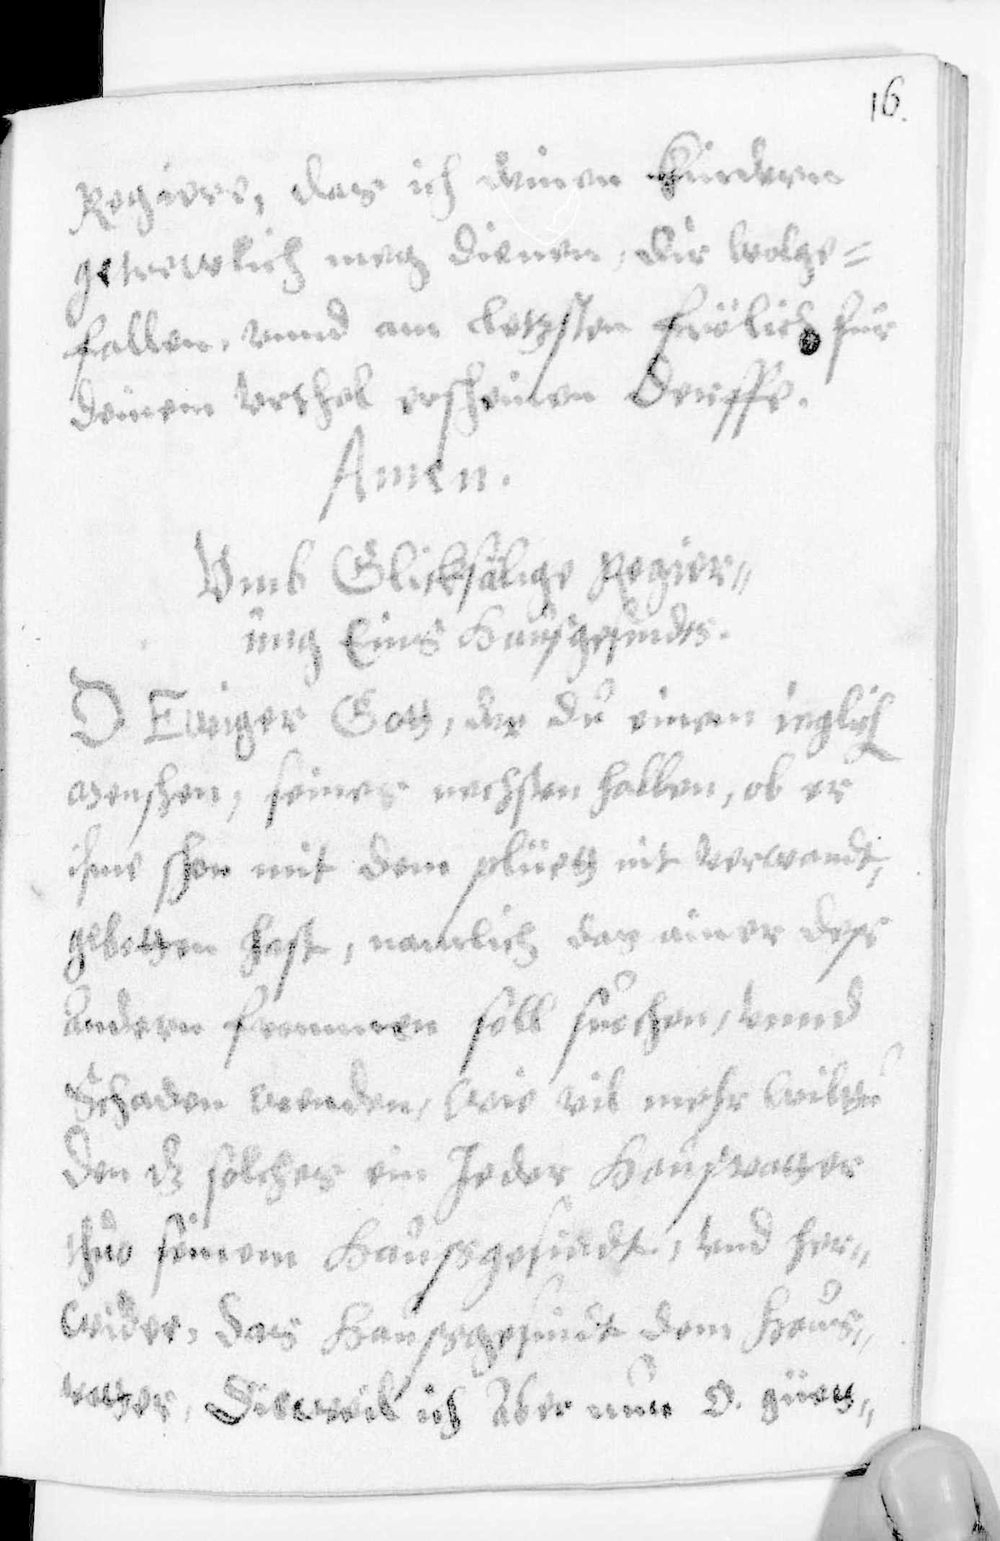 16.
Regiere, das ich deinen Kindern
getrewlich meg dienen, dir wolge=
fallen, vnnd am letzsten frölich für
deinem vrthel erscheinen derffe.
Amen.
Vmb Glicksälige Regier„
ung Eins Haußgesindes.
O Ewiger Gott, der du einem ieglich
menschen, seines nechsten halben, ob er
ihme schon mit dem pluett nit verwandt,
gebotten hast, namlich das ainer des
andern frummen soll suechen, vnnd
Schaden wenden, wie vil mehr wiltu
den dz solches ein Jeder Haußvatter
thue seinem Haußgesindt, vnd her„
wider, das Haußgesindt dem Haus„
vatter, Dieweil ich aber nun O. güett„